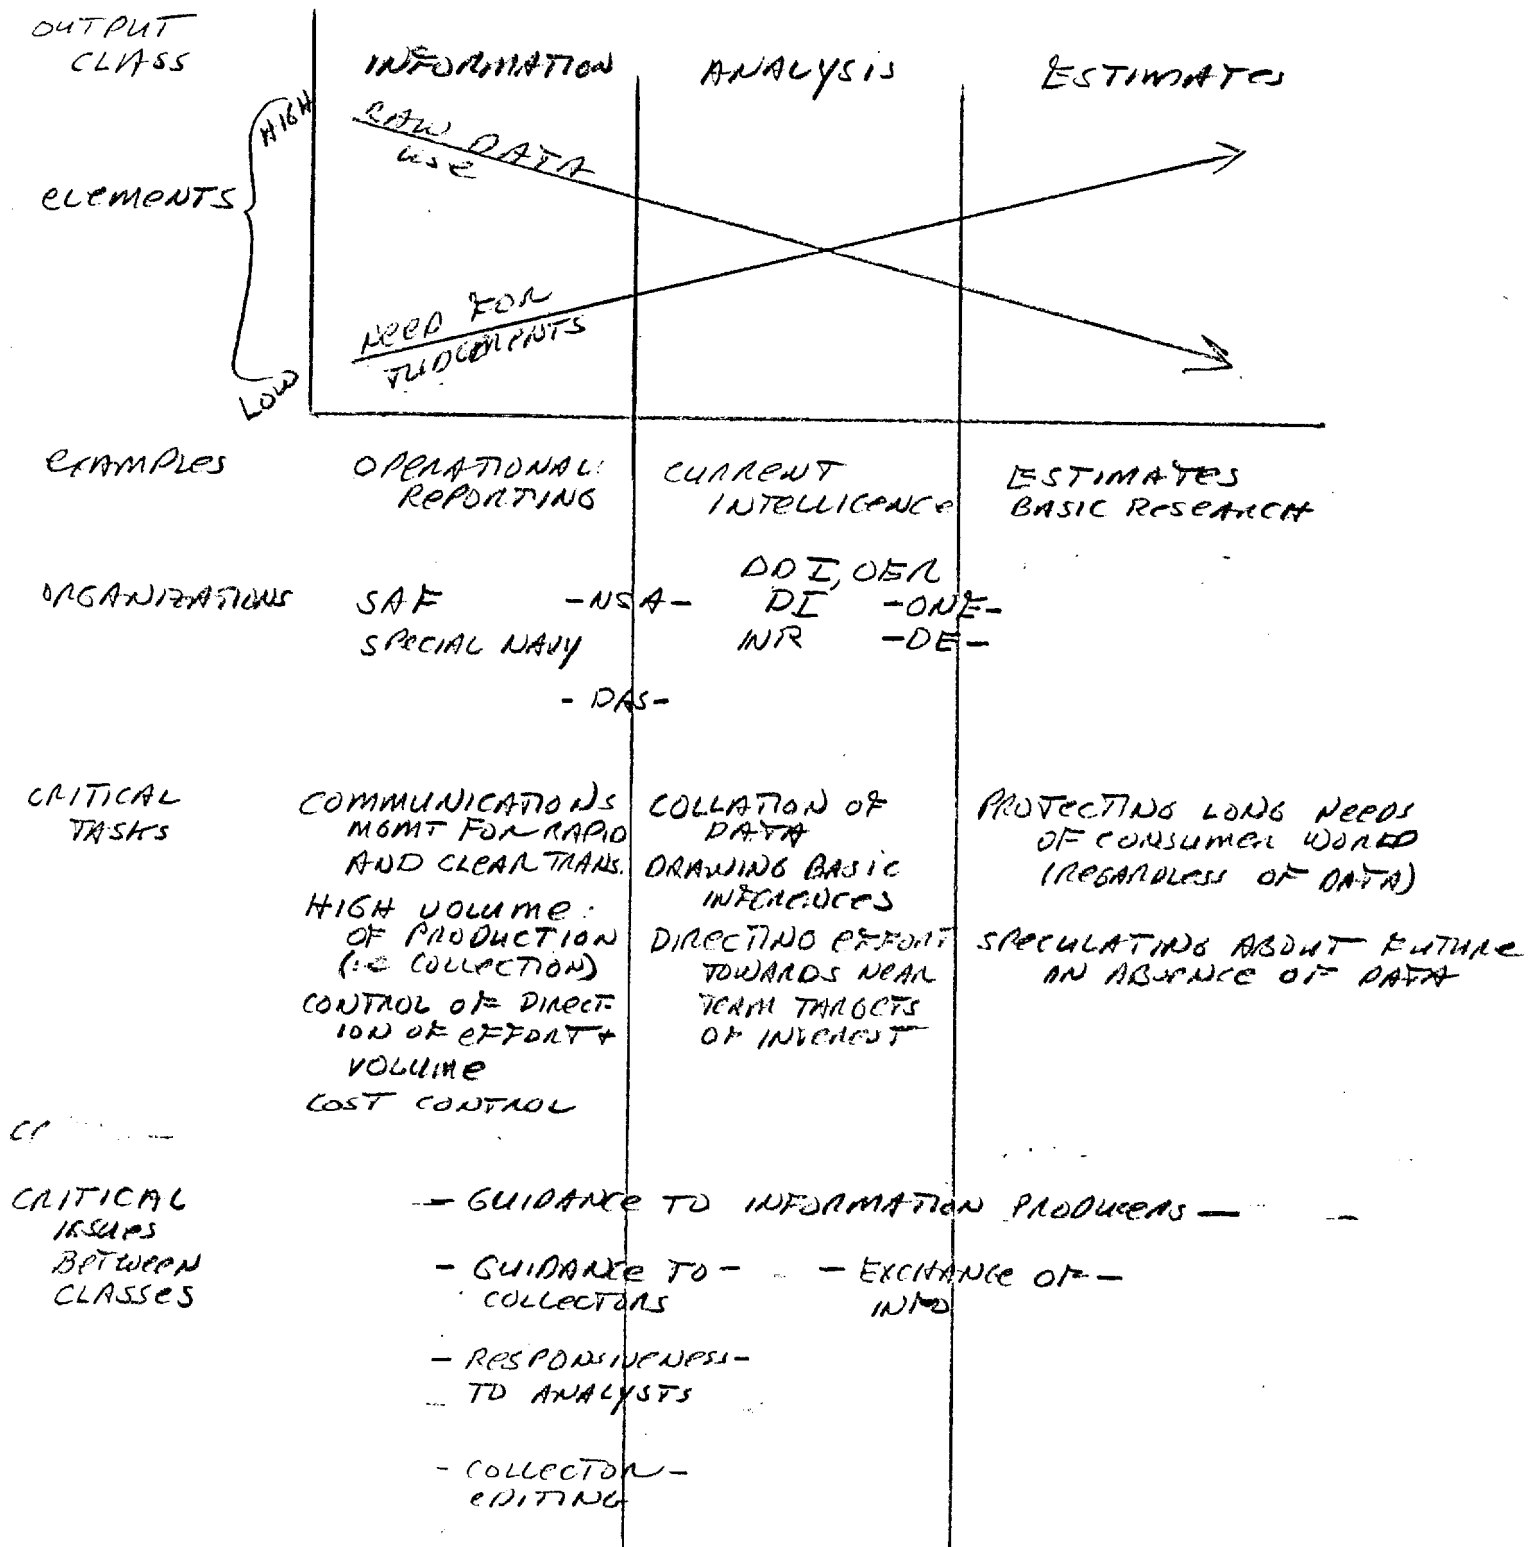 OUTPUT
CLASS
INFORMATION
ANALYSIS
ESTIMATES
HIGH
RAW DATA
USE
ELEMENTS
NEED FOR
JUDGMENTS
LOW
EXAMPLES
OPERATIONAL
REPORTING
CURRENT
INTELLIGENCE
ESTIMATES
BASIC RESEARCH
ORGANIZATIONS
SAF
SPECIAL NAVY
-NSA-
- DAS-
DDI, OER
DI
INR
-ONE-
-DE-
CRITICAL
TASKS
COMMUNICATIONS
MGMT FOR RAPID
AND CLEAR TRANS.
HIGH VOLUME
OF PRODUCTION
(IE COLLECTION)
CONTROL OF DIRECT
ION OF EFFORT +
VOLUME
COST CONTROL
COLLATION OF
DATA
DRAWING BASIC
INFERENCES
DIRECTING EFFORT
TOWARDS NEAR
TERM TARGETS
OF INTEREST
PROTECTING LONG NEEDS
OF CONSUMER WORLD
(REGARDLESS OF DATA)
SPECULATING ABOUT FUTURE
IN ABSENCE OF DATA
CRITICAL
ISSUES
BETWEEN
CLASSES
- GUIDANCE TO INFORMATION PRODUCERS -
- GUIDANCE TO -
COLLECTORS
- EXCHANGE OF -
INFO
- RESPONSIVENESS -
TO ANALYSTS
- COLLECTOR -
EDITING